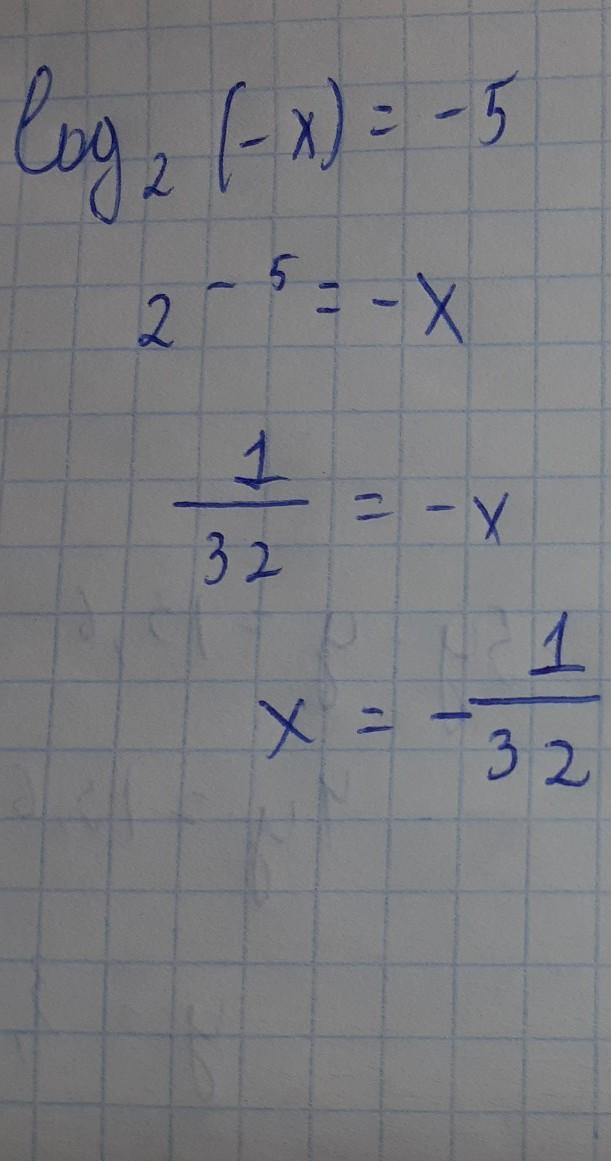 log₂ (-x) = -5
2⁻⁵ = -x
1/32 = -x
x = -1/32